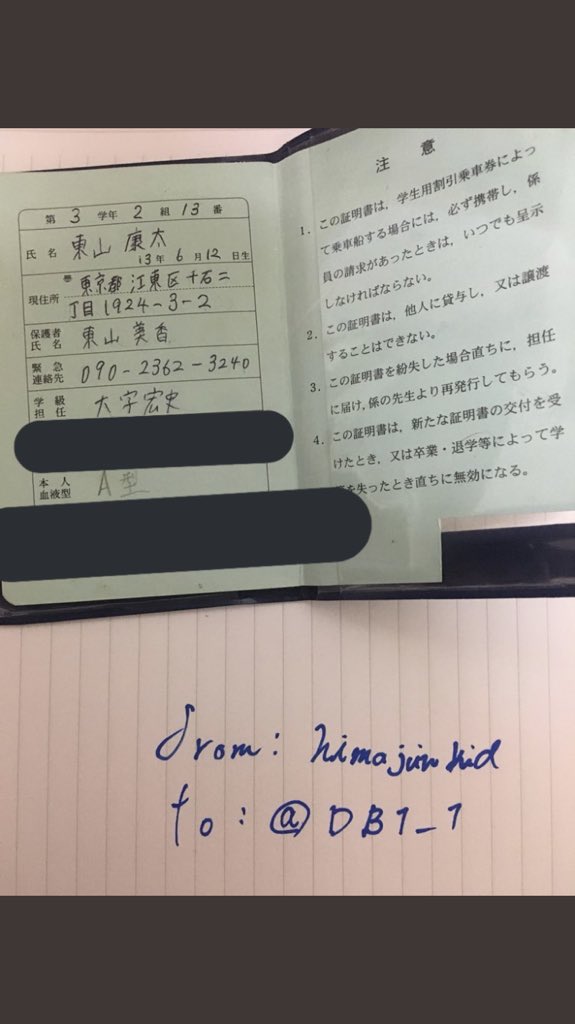 第 3 学年 2 組 13 番
氏名 東山 康太
13年 6月12日生
現住所 東京都 江東区 千石二
丁目 1924-3-2
保護者氏名 東山 美香
緊急連絡先 090-2362-3240
学級担任 大字宏史
本人血液型 A型
注意
1. この証明書は，学生用割引乗車券によっ
て乗車船する場合には，必ず携帯し，係
員の請求があったときは，いつでも呈示
しなければならない。
2. この証明書は，他人に貸与し，又は譲渡
することはできない。
3. この証明書を紛失した場合直ちに，担任
に届け，係の先生より再発行してもらう。
4. この証明書は，新たな証明書の交付を受
けたとき，又は卒業・退学等によって学
を失ったとき直ちに無効になる。
from: himajinkid
to: @DB1_1